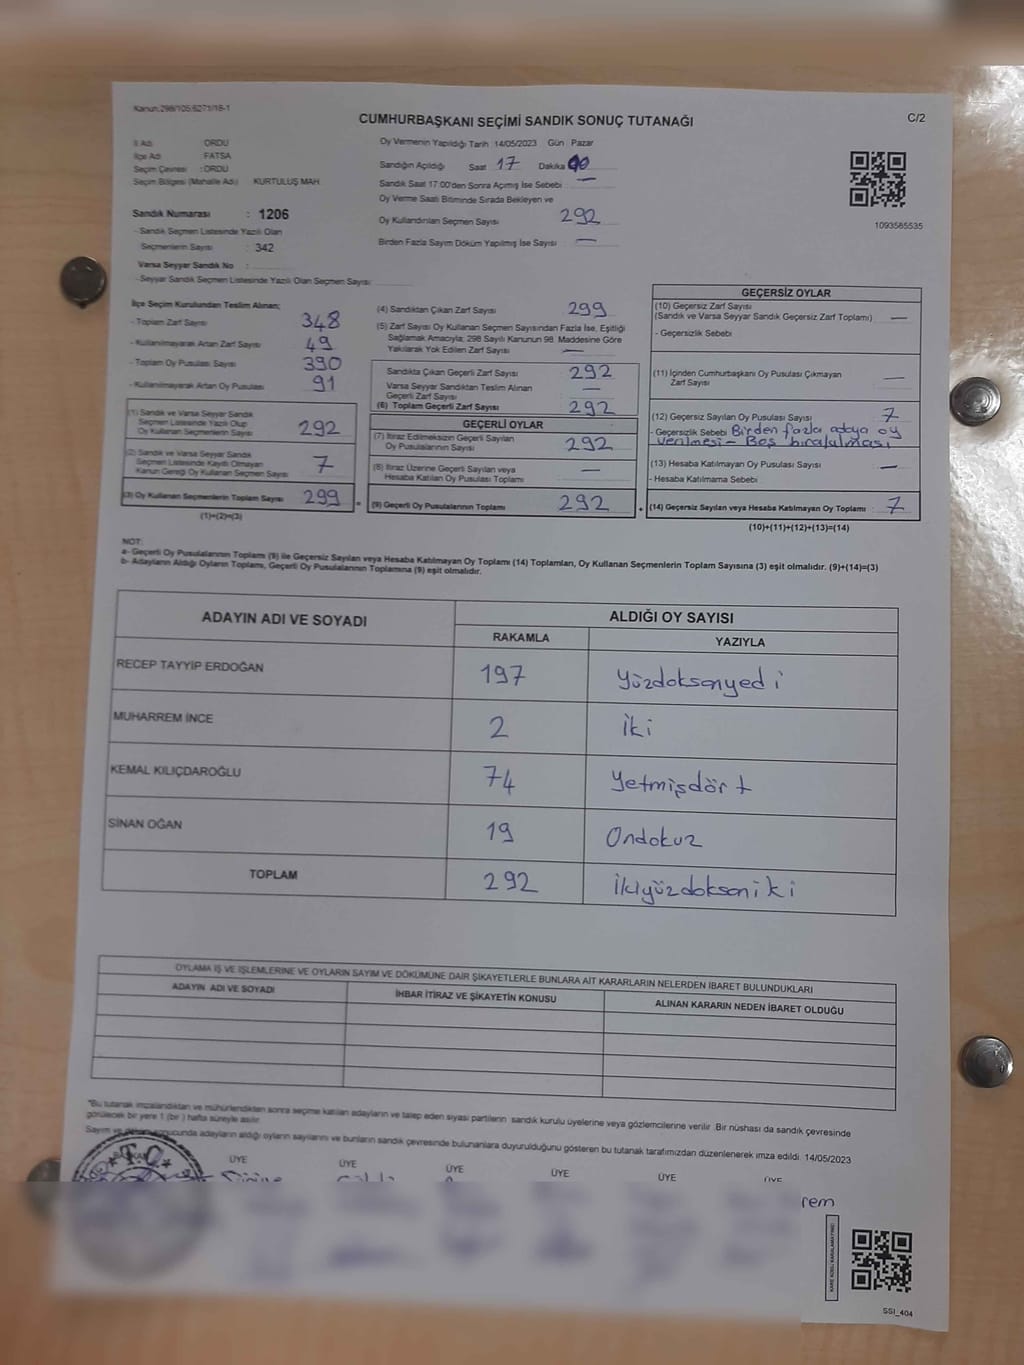 Kanun.298/105,6271/18-1
CUMHURBAŞKANI SEÇİMİ SANDIK SONUÇ TUTANAĞI
C/2
İl Adı : ORDU
İlçe Adı : FATSA
Seçim Çevresi : ORDU
Seçim Bölgesi (Mahalle Adı) KURTULUŞ MAH.
Sandık Numarası : 1206
- Sandık Seçmen Listesinde Yazılı Olan
Seçmenlerin Sayısı : 342
Varsa Seyyar Sandık No :
- Seyyar Sandık Seçmen Listesinde Yazılı Olan Seçmen Sayısı :
Oy Vermenin Yapıldığı Tarih 14/05/2023 Gün Pazar
Sandığın Açıldığı Saat 17 Dakika
Sandık Saat 17:00'den Sonra Açılmış İse Sebebi —
Oy Verme Saati Bitiminde Sırada Bekleyen ve
Oy Kullandırılan Seçmen Sayısı 292
Birden Fazla Sayım Döküm Yapılmış İse Sayısı : —
1093565535
İlçe Seçim Kurulundan Teslim Alınan;
- Toplam Zarf Sayısı 348
- Kullanılmayarak Artan Zarf Sayısı : 49
- Toplam Oy Pusulası Sayısı 390
- Kullanılmayarak Artan Oy Pusulası 91
(1) Sandık ve Varsa Seyyar Sandık
Seçmen Listesinde Yazılı Olup
Oy Kullanan Seçmenlerin Sayısı 292
(2) Sandık ve Varsa Seyyar Sandık
Seçmen Listesinde Kayıtlı Olmayan
Kanun Gereği Oy Kullanan Seçmen Sayısı 7
(3) Oy Kullanan Seçmenlerin Toplam Sayısı 299
(1)+(2)=(3)
(4) Sandıktan Çıkan Zarf Sayısı 299
(5) Zarf Sayısı Oy Kullanan Seçmen Sayısından Fazla İse, Eşitliği
Sağlamak Amacıyla; 298 Sayılı Kanunun 98. Maddesine Göre
Yakılarak Yok Edilen Zarf Sayısı —
Sandıkta Çıkan Geçerli Zarf Sayısı 292
Varsa Seyyar Sandıktan Teslim Alınan
Geçerli Zarf Sayısı —
(6) Toplam Geçerli Zarf Sayısı 292
GEÇERLİ OYLAR
(7) İtiraz Edilmeksizin Geçerli Sayılan
Oy Pusulalarının Sayısı 292
(8) İtiraz Üzerine Geçerli Sayılan veya
Hesaba Katılan Oy Pusulası Toplamı —
(9) Geçerli Oy Pusulalarının Toplamı 292
GEÇERSİZ OYLAR
(10) Geçersiz Zarf Sayısı
(Sandık ve Varsa Seyyar Sandık Geçersiz Zarf Toplamı) —
- Geçersizlik Sebebi
(11) İçinden Cumhurbaşkanı Oy Pusulası Çıkmayan
Zarf Sayısı —
(12) Geçersiz Sayılan Oy Pusulası Sayısı 7
- Geçersizlik Sebebi Birden fazla adaya oy
verilmesi - Boş bırakılması
(13) Hesaba Katılmayan Oy Pusulası Sayısı —
- Hesaba Katılmama Sebebi
(14) Geçersiz Sayılan veya Hesaba Katılmayan Oy Toplamı 7
(10)+(11)+(12)+(13)=(14)
NOT:
a- Geçerli Oy Pusulalarının Toplamı (9) ile Geçersiz Sayılan veya Hesaba Katılmayan Oy Toplamı (14) Toplamları, Oy Kullanan Seçmenlerin Toplam Sayısına (3) eşit olmalıdır. (9)+(14)=(3)
b- Adayların Aldığı Oyların Toplamı, Geçerli Oy Pusulalarının Toplamına (9) eşit olmalıdır.
ADAYIN ADI VE SOYADI
ALDIĞI OY SAYISI
RAKAMLA YAZIYLA
RECEP TAYYİP ERDOĞAN 197 Yüzdoksanyedi
MUHARREM İNCE 2 İki
KEMAL KILIÇDAROĞLU 74 Yetmişdört
SİNAN OĞAN 19 Ondokuz
TOPLAM 292 İkiyüzdoksaniki
OYLAMA İŞ VE İŞLEMLERİNE VE OYLARIN SAYIM VE DÖKÜMÜNE DAİR ŞİKAYETLERLE BUNLARA AİT KARARLARIN NELERDEN İBARET BULUNDUKLARI
ADAYIN ADI VE SOYADI İHBAR İTİRAZ VE ŞİKAYETİN KONUSU ALINAN KARARIN NEDEN İBARET OLDUĞU
*Bu tutanak imzalandıktan ve mühürlendikten sonra seçime katılan adayların ve talep eden siyasi partilerin sandık kurulu üyelerine veya gözlemcilerine verilir. Bir nüshası da sandık çevresinde
görülecek bir yere 1 (bir) hafta süreyle asılır.
Sayım ve sonucunda adayların aldığı oyların sayılarını ve bunların sandık çevresinde bulunanlara duyurulduğunu gösteren bu tutanak tarafımızdan düzenlenerek imza edildi. 14/05/2023
T.C.
ÜYE ÜYE ÜYE ÜYE ÜYE ÜYE
rem
SSI_404